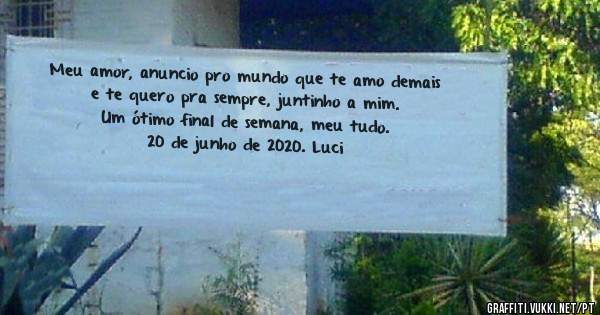 Meu amor, anuncio pro mundo que te amo demais
e te quero pra sempre, juntinho a mim.
Um ótimo final de semana, meu tudo.
20 de junho de 2020. Luci
GRAFFITI.VUKKI.NET/PT